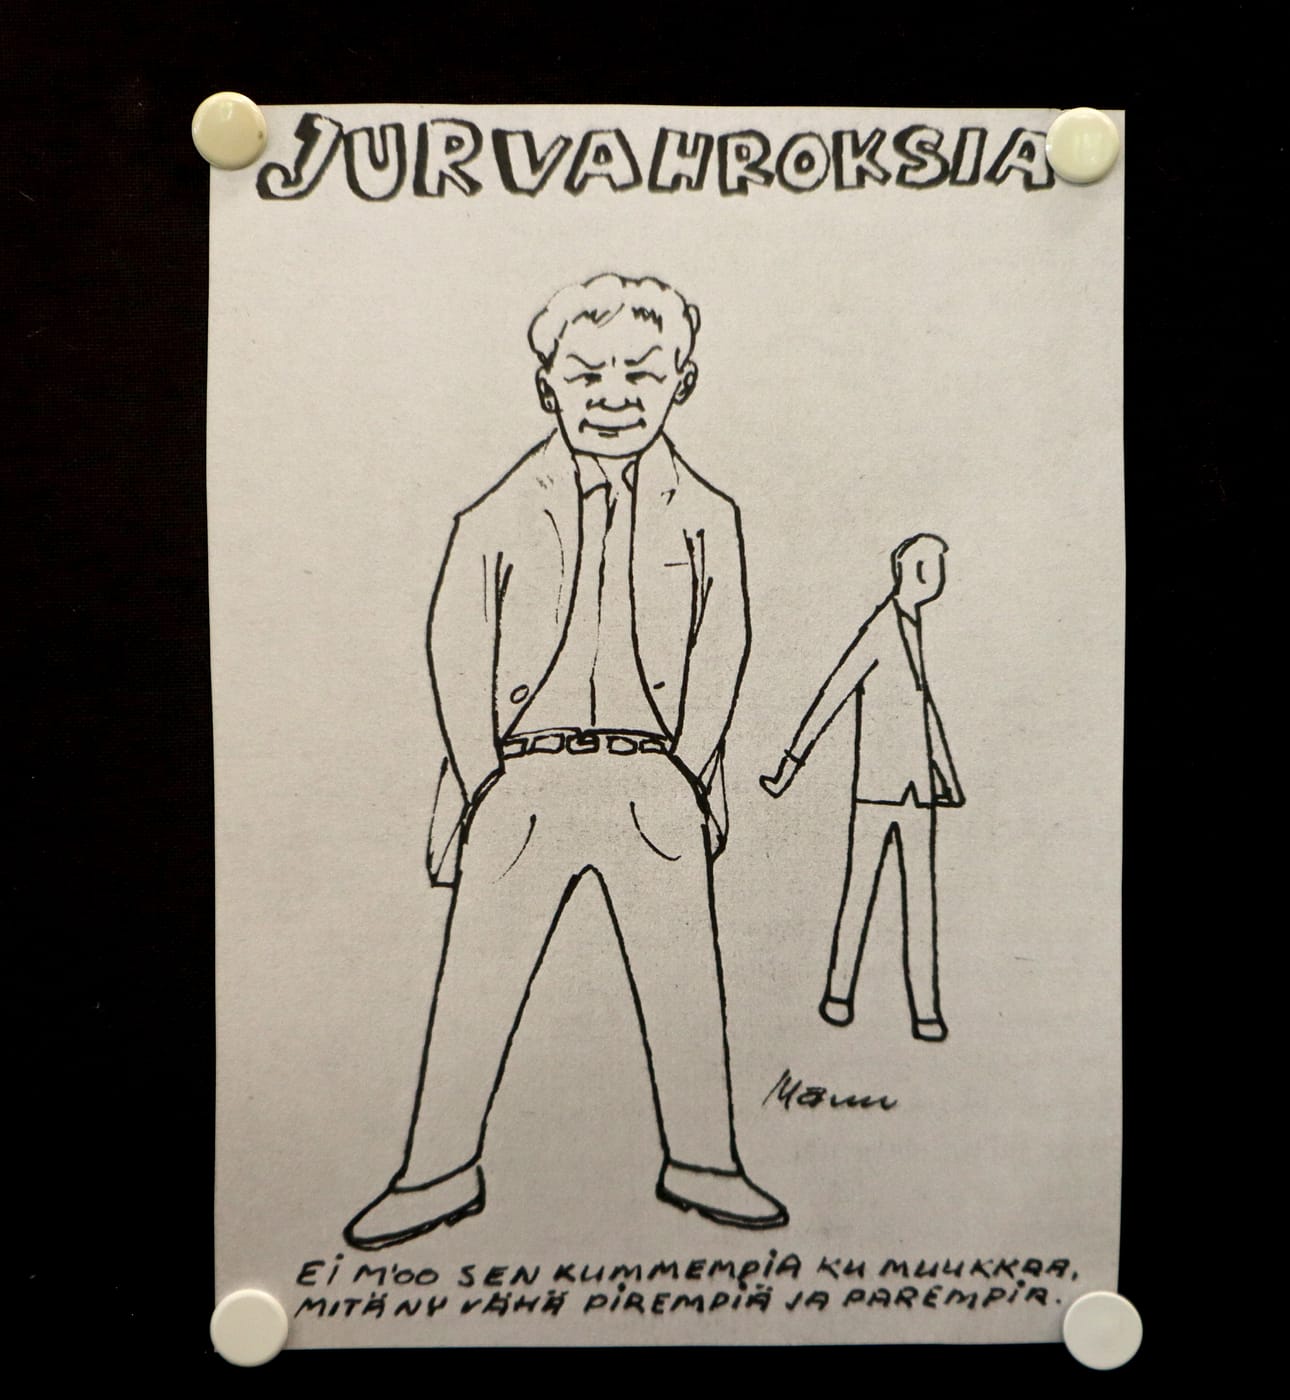 JURVAHROKSIA
Mänu
Ei M'OO SEN KUMMEMPIA KU MUUKKAA,
MITÄ NY VÄHÄ PIREMPIÄ JA PAREMPIA.